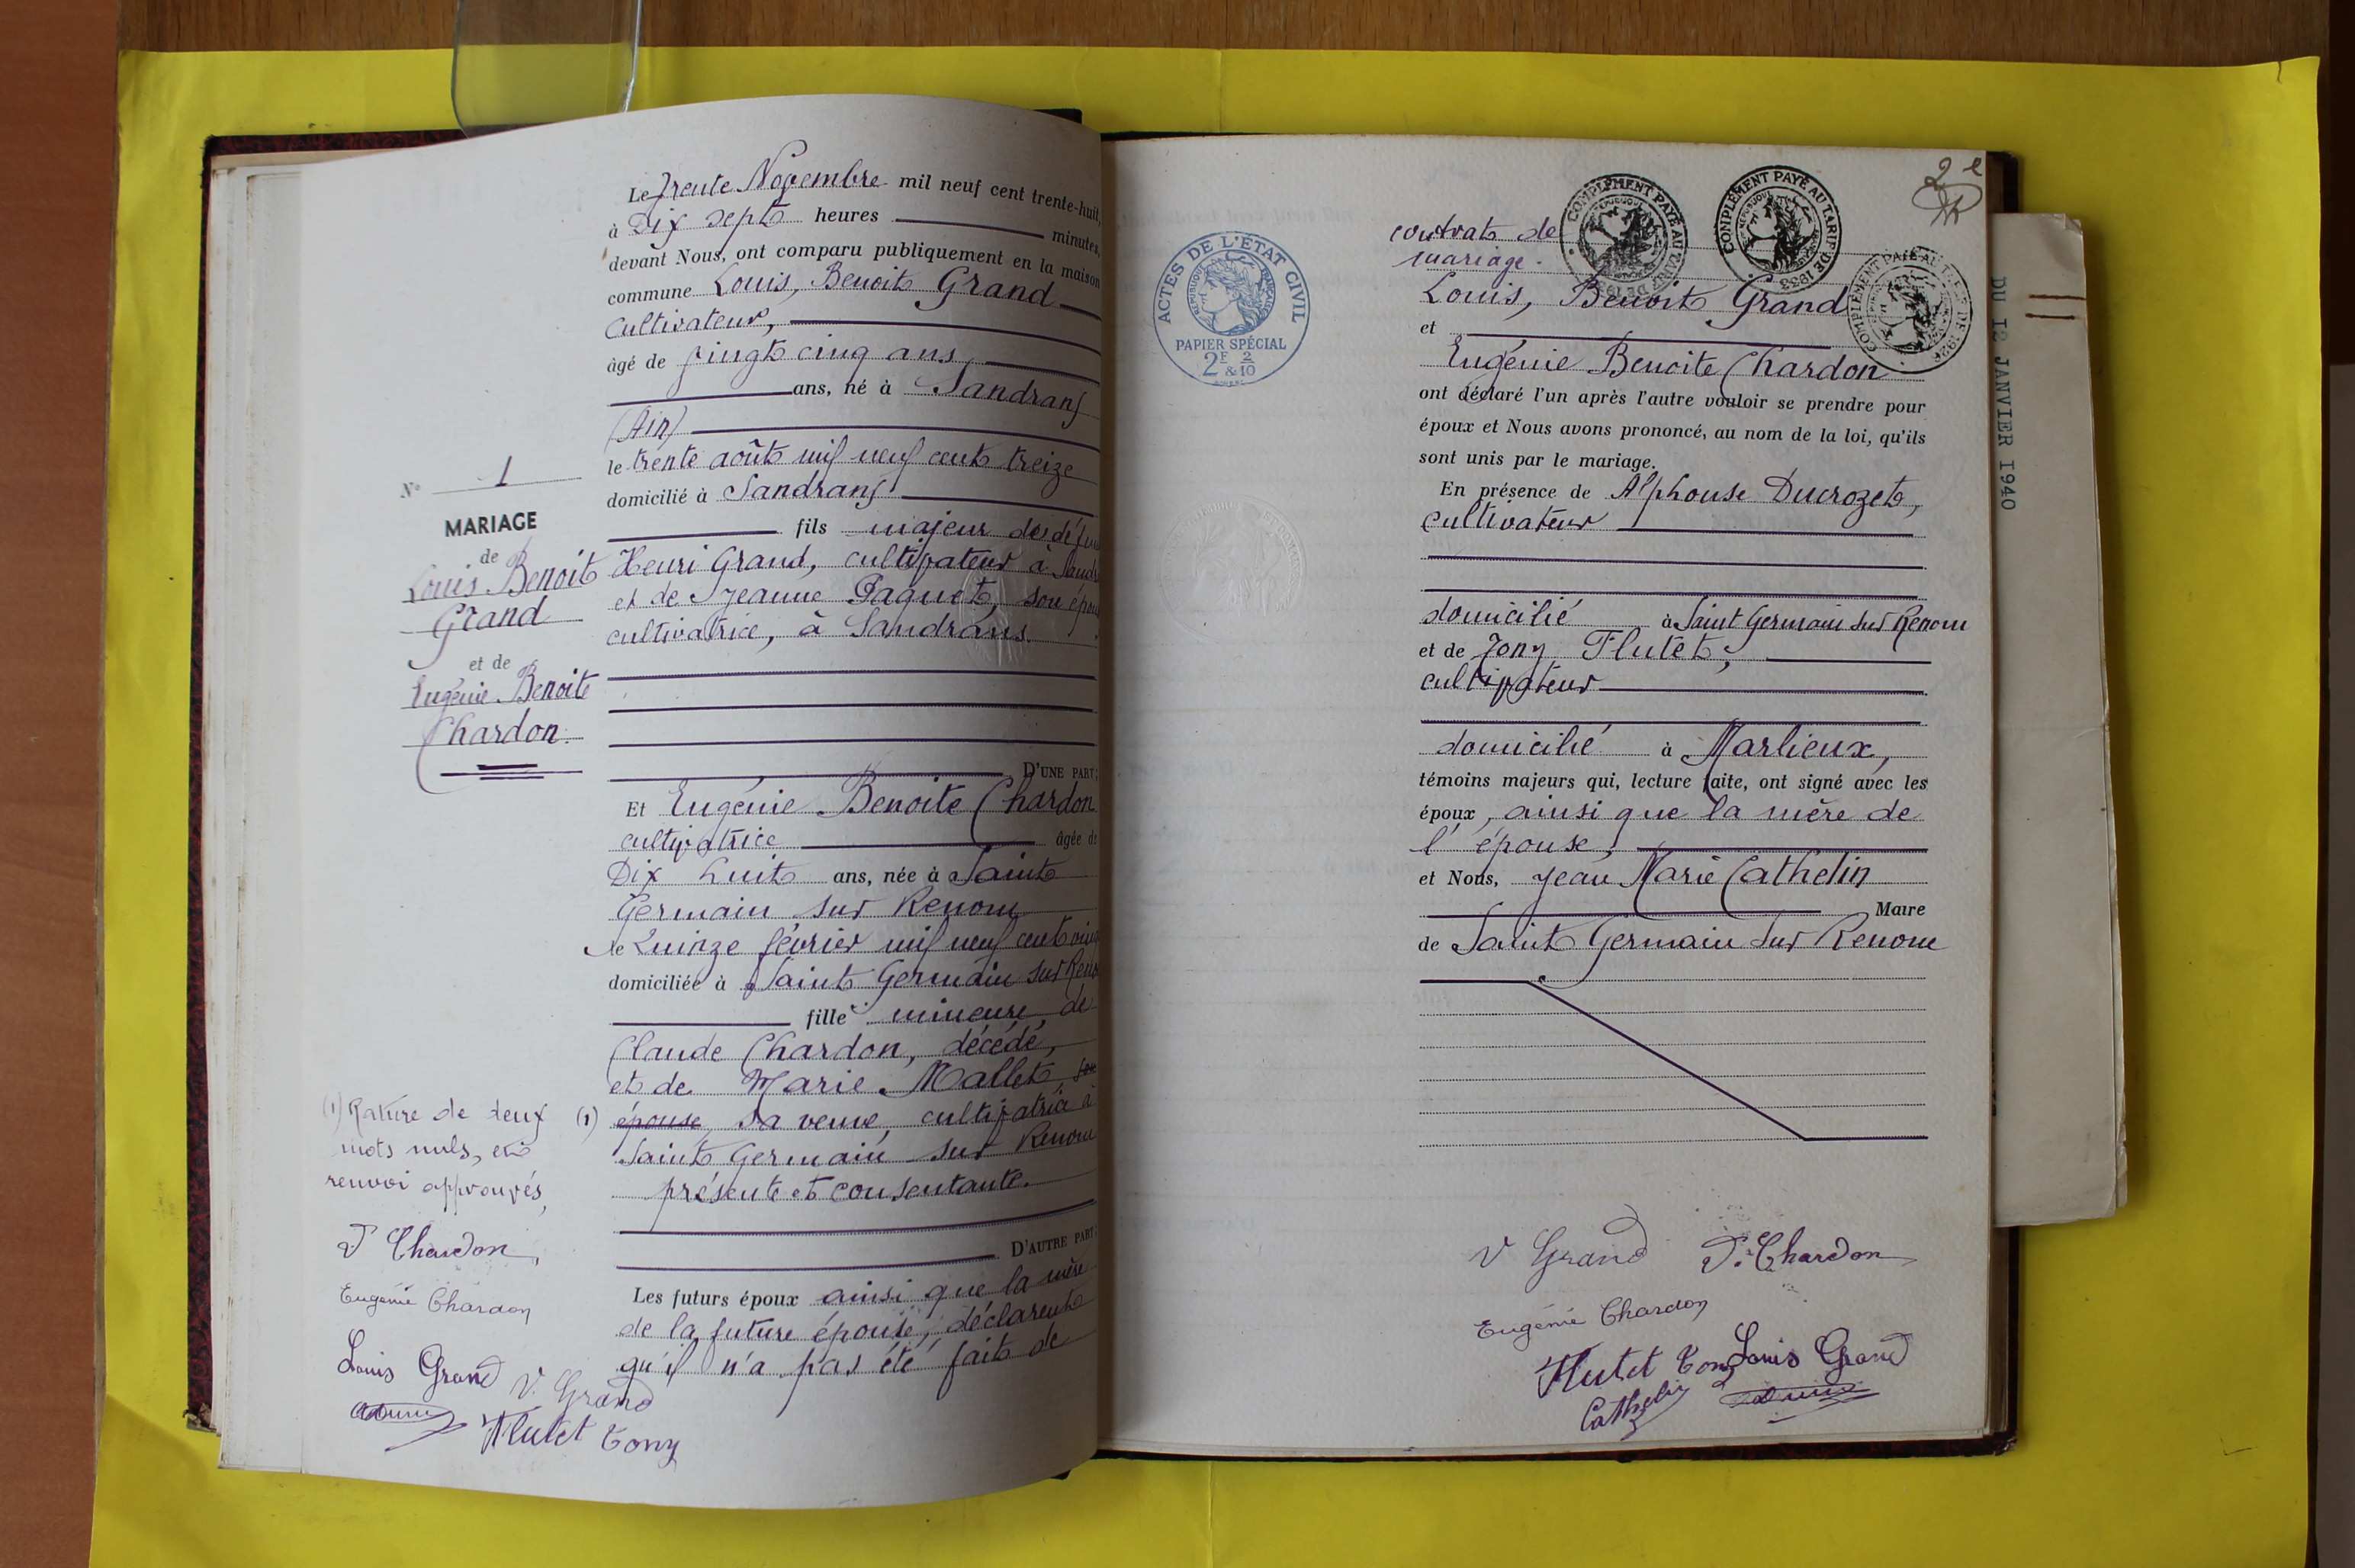 Le Trente Novembre mil neuf cent trente-huit,
à Dix sept heures minutes,
devant Nous, ont comparu publiquement en la maison
commune Louis, Benoit Grand
Cultivateur,
âgé de vingt cinq ans,
ans, né à Sandrans
(Ain)
le trente août mil neuf cent treize
domicilié à Sandrans
fils majeur des
Henri Grand, cultivateur à
et de Jeanne Paquet, son
cultivatrice, à Sandrans.
D'UNE PART;
Et Eugénie Benoite Chardon
cultivatrice âgée de
Dix huit ans, née à Saint
Germain sur Renom
le Quinze février mil neuf cent
domiciliée à Saint Germain sur
fille mineure de
Claude Chardon, décédé,
et de Marie Mallet, son
(1) épouse, sa veuve, cultivatrice à
Saint Germain sur Renom
présente et consentante.
D'AUTRE PART;
Les futurs époux ainsi que la mère
de la future épouse, déclarent
qu'il n'a pas été fait de
N° 1
MARIAGE
de
Louis Benoit
Grand
et de
Eugénie Benoite
Chardon.
(1) Rature de deux
mots nuls, et
renvoi approuvés,
Chardon
Eugénie Chardon
Louis Grand V. Grand
Flutet Tony
2e
ACTES DE L'ÉTAT CIVIL
RÉPUBLIQUE FRANÇAISE
PAPIER SPÉCIAL
2F & 2/10
COMPLÉMENT PAYÉ AU TARIF DE
COMPLÉMENT PAYÉ AU TARIF DE 1933
COMPLÉMENT PAYÉ AU TARIF DE
contrat de
mariage.
Louis, Benoit Grand
et
Eugénie Benoite Chardon
ont déclaré l'un après l'autre vouloir se prendre pour
époux et Nous avons prononcé, au nom de la loi, qu'ils
sont unis par le mariage.
En présence de Alphonse Ducrozet,
cultivateur
domicilié à Saint Germain sur Renom
et de Tony Flutet,
cultivateur
domicilié à Marlieux,
témoins majeurs qui, lecture faite, ont signé avec les
époux, ainsi que la mère de
l'épouse,
et Nous, Jean Marie Cathelin
Maire
de Saint Germain sur Renom
V Grand Chardon
Eugénie Chardon
Flutet Tony Louis Grand
Cathelin
DU 12 JANVIER 1940